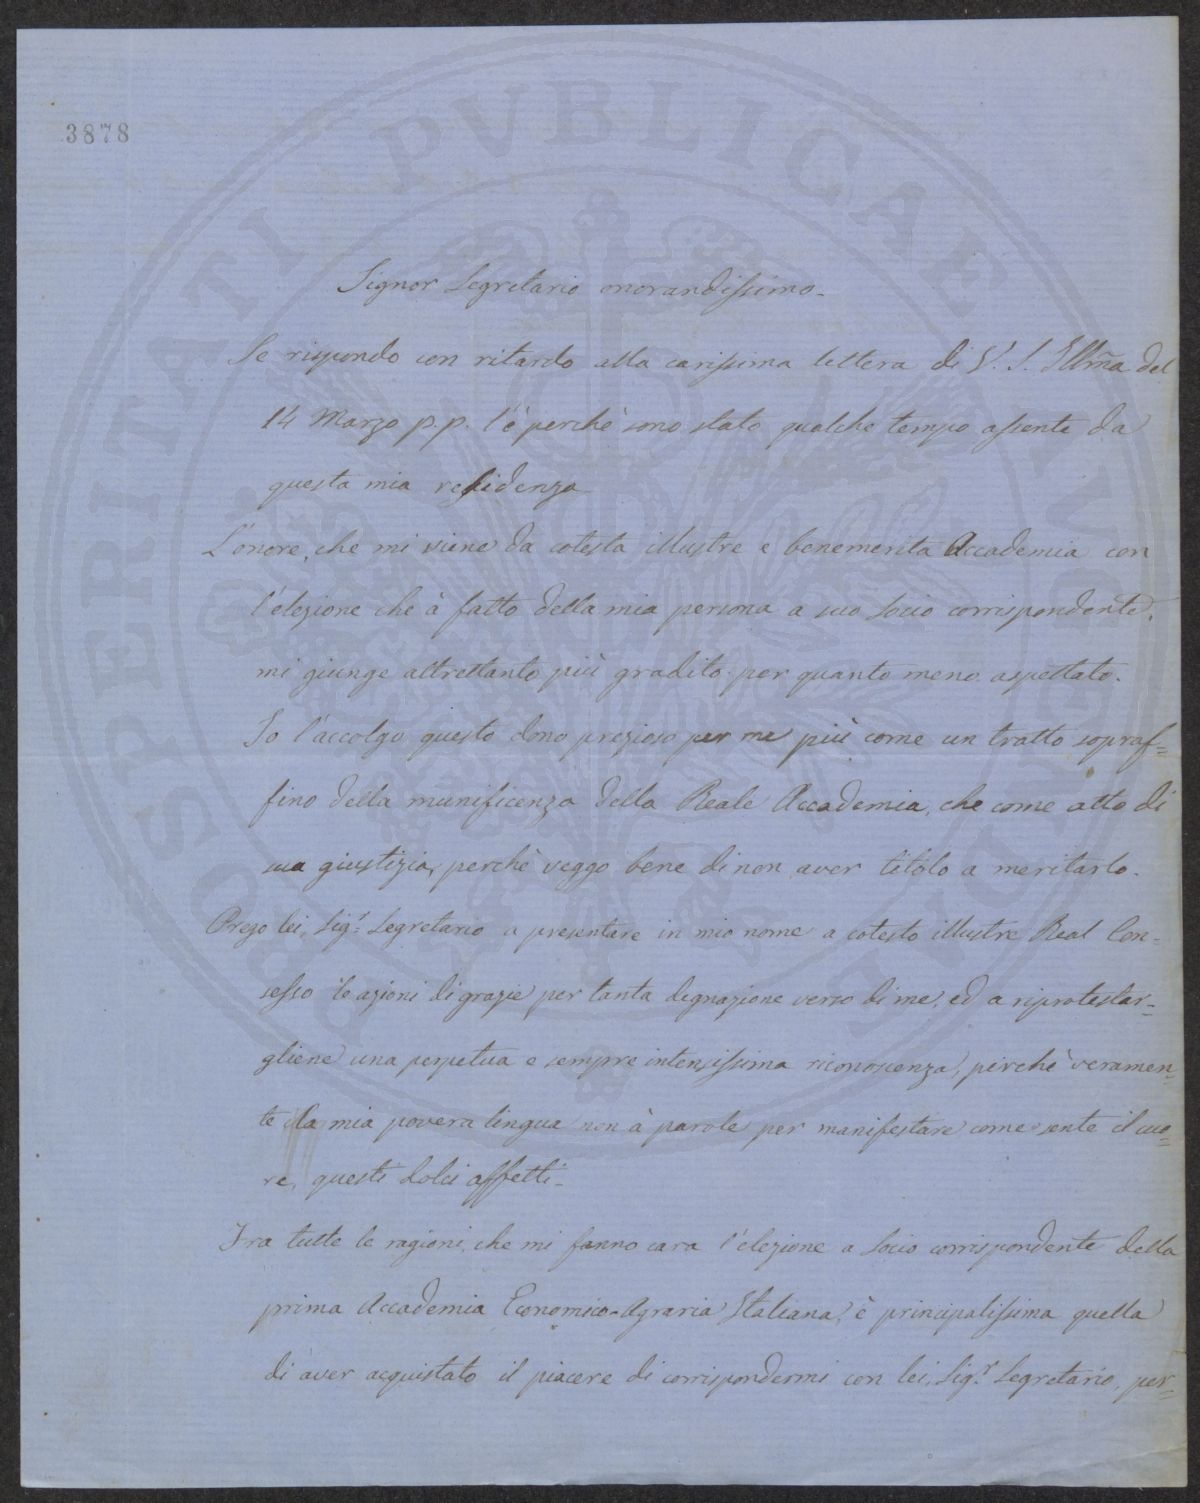 3878
PROSPERITATI PVBLICAE AVGENDAE
Signor Segretario onorandissimo.
Se rispondo con ritardo alla carissima lettera di V. S. Illm̃a del
14 Marzo p.p. l'è perchè sono stato qualche tempo assente da
questa mia residenza
L'onore, che mi viene da cotesta illustre e benemerita Accademia con
l'elezione che à fatto della mia persona a suo Socio corrispondente,
mi giunge altrettanto più gradito per quanto meno aspettato.
Io l'accolgo questo dono prezioso per me più come un tratto sopraf=
fino della munificenza della Reale Accademia, che come atto di
sua giustizia, perchè veggo bene di non aver titolo a meritarlo.
Prego lei, Sig.r Segretario a presentare in mio nome a cotesto illustre Real Con=
sesso le azioni di grazie per tanta degnazione verso di me, ed a riprotestar=
gliene una perpetua e sempre intensissima riconoscenza, perchè veramen=
te la mia povera lingua non à parole per manifestare come sente il cuo=
re, questi dolci affetti.
Fra tutte le ragioni, che mi fanno cara l'elezione a Socio corrispondente della
prima Accademia Economico-Agraria Italiana, è principalissima quella
di aver acquistato il piacere di corrispondermi con lei, Sig.r Segretario, per=